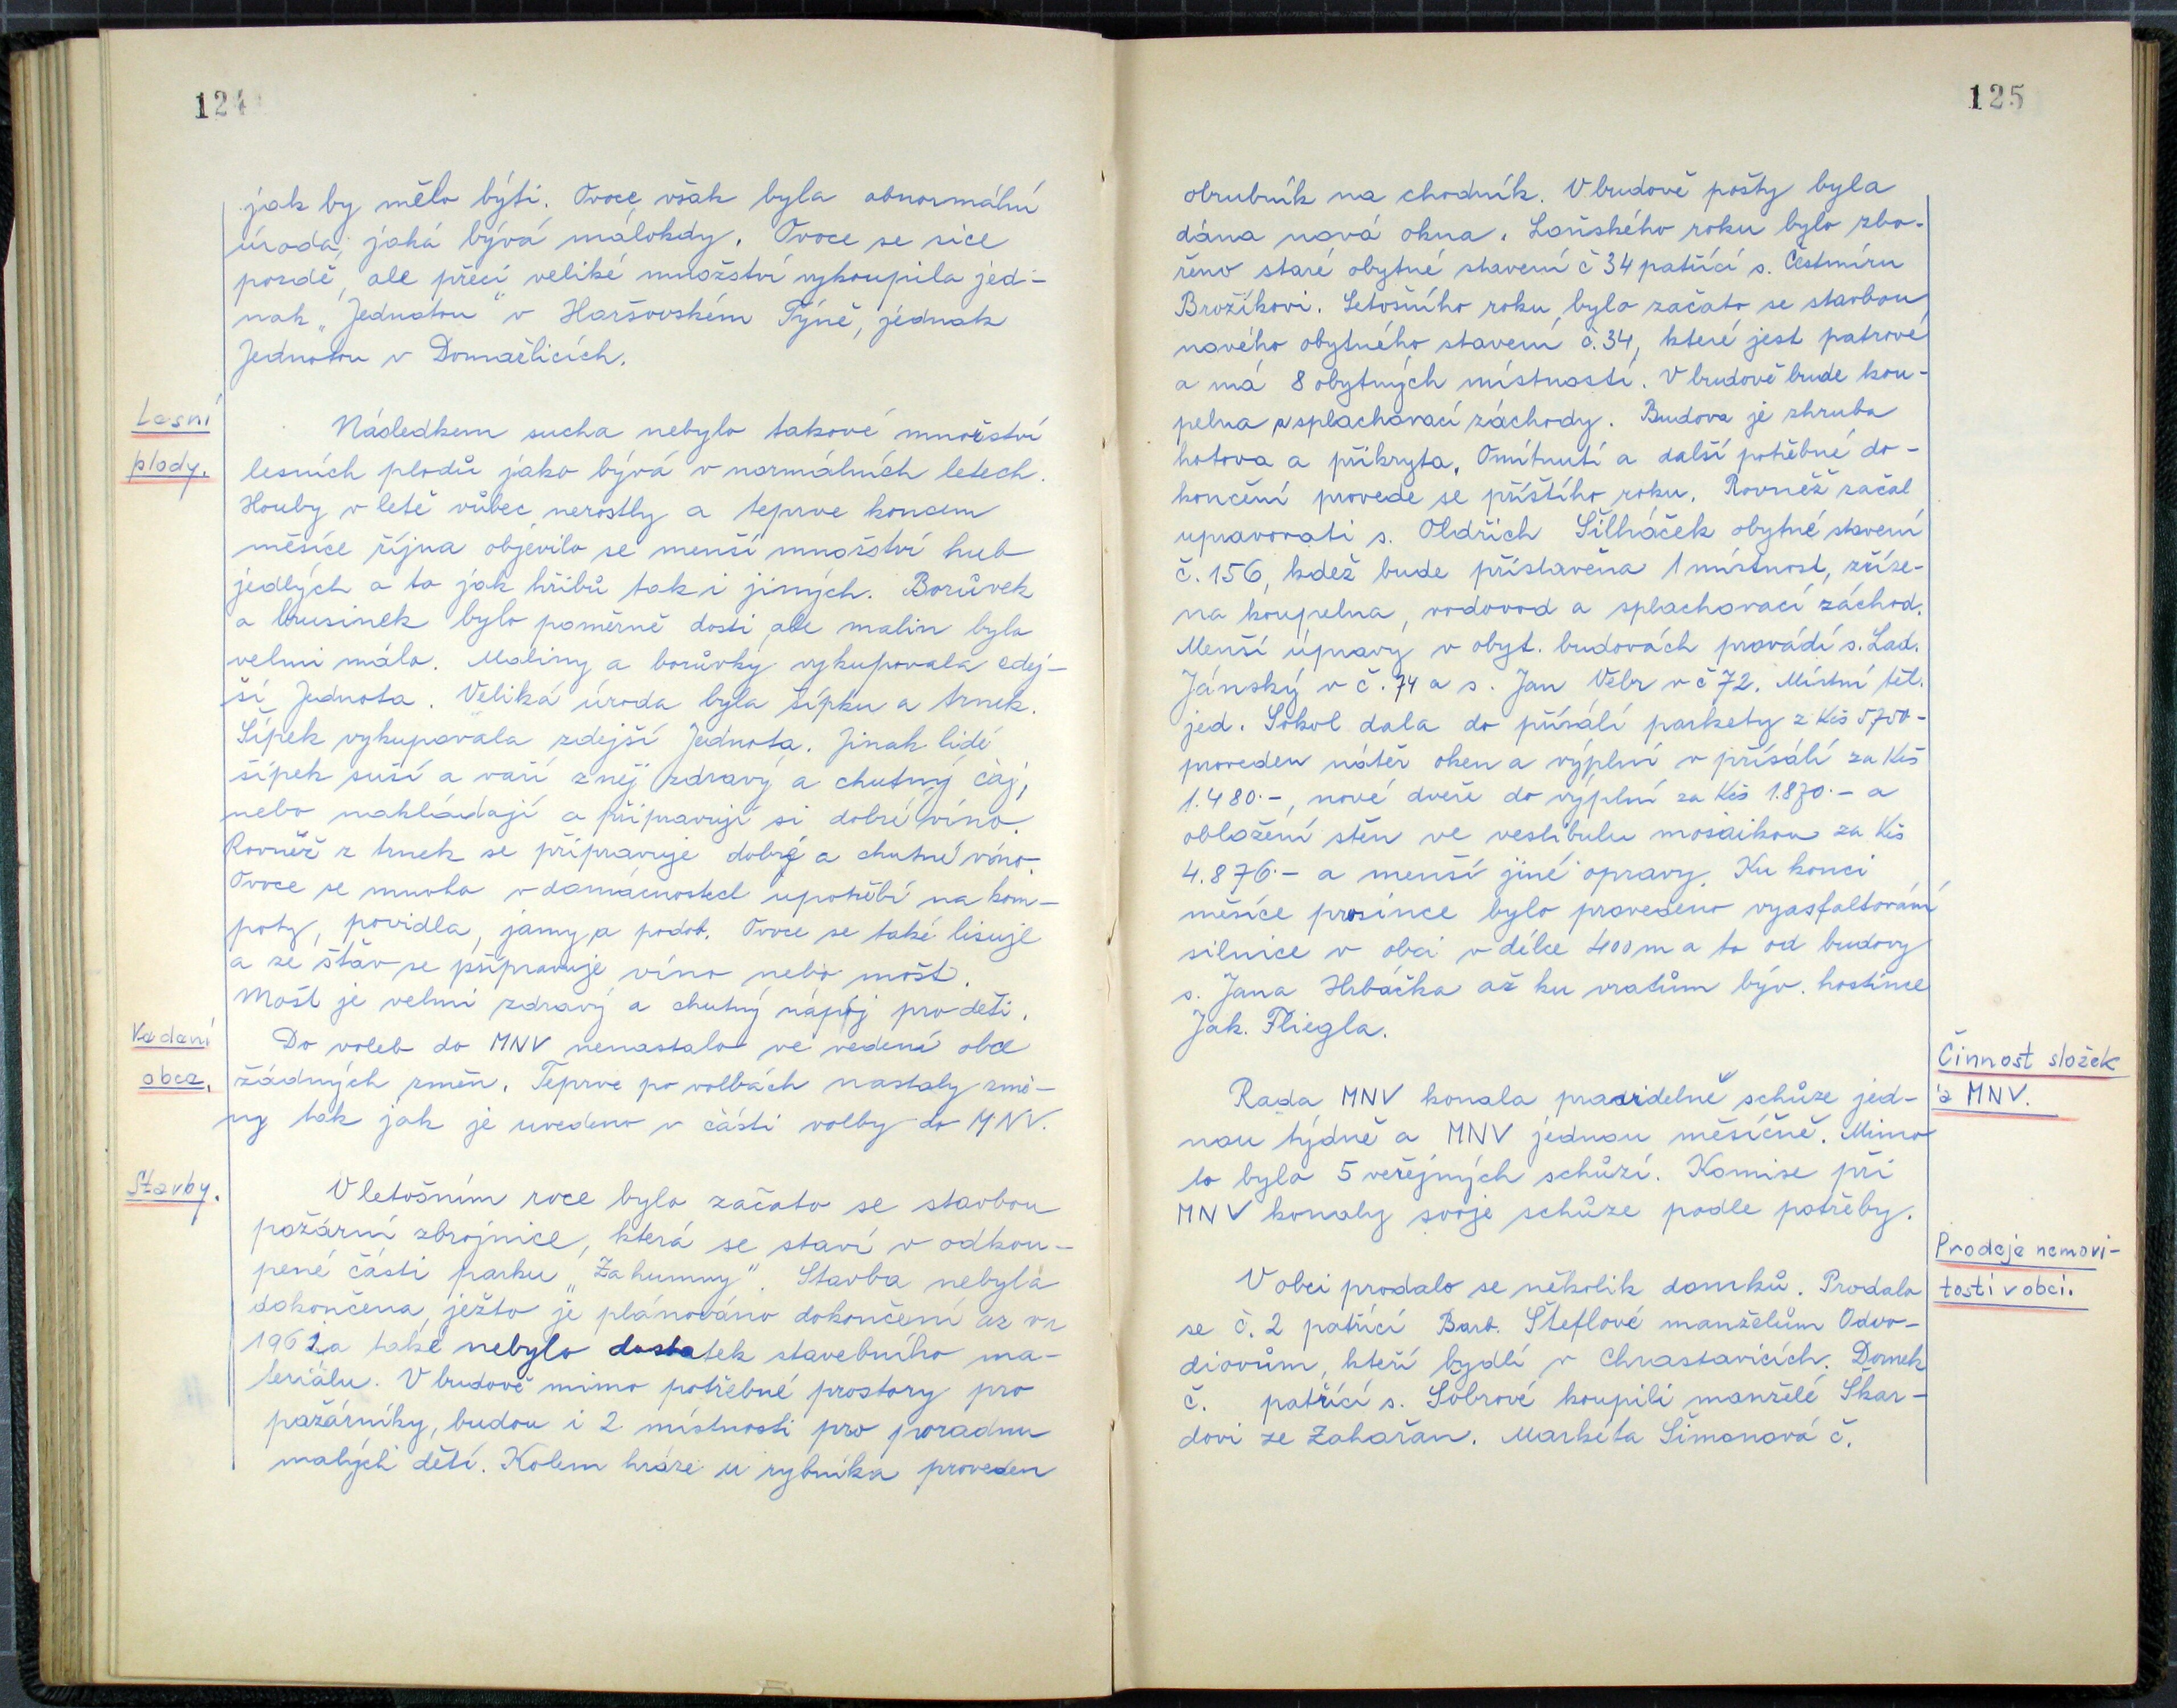 124
jak by mělo býti. Ovoce však byla abnormální
úroda, jaká bývá málokdy. Ovoce se sice
pozdě, ale přeci veliké množství vykoupila jed-
nak „Jednotou" v Horšovském Týně, jednak
Jednotou v Domažlicích.
Lesní
plody.
Následkem sucha nebylo takové množství
lesních plodů jako bývá v normálních letech.
Houby v letě vůbec nerostly a teprve koncem
měsíce října objevilo se menší množství hub
jedlých a to jak hřibů tak i jiných. Borůvek
a brusinek bylo poměrně dosti ale malin bylo
velmi málo. Maliny a borůvky vykupovala zdej-
ší Jednota. Veliká úroda byla šípku a trnek.
Šípek vykupovala zdejší Jednota. Jinak lidé
šípek suší a vaří z něj zdravý a chutný čaj,
nebo nakládají a připravují si dobré víno.
Rovněž z trnek se připravuje dobré a chutné víno.
Ovoce se mnoho v domácnostech upotřebí na kom-
poty, povidla, jamy a podob. Ovoce se také lisuje
a ze šťáv se připravuje víno nebo mošt.
Mošt je velmi zdravý a chutný nápoj pro děti.
Vedení
obce.
Do voleb do MNV nenastalo ve vedení obce
žádných změn. Teprve po volbách nastaly změ-
ny tak jak je uvedeno v části volby do MNV.
Stavby.
V letošním roce bylo začato se stavbou
požární zbrojnice, která se staví v odkou-
pené části parku „Zahumny". Stavba nebyla
dokončena, ježto je plánováno dokončení až v r
1961 a také nebylo dostatek stavebního ma-
teriálu. V budově mimo potřebné prostory pro
požárníky, budou i 2 místnosti pro poradnu
malých dětí. Kolem hráze u rybníka proveden
125
obrubník na chodník. V budově pošty byla
dána nová okna. Loňského roku bylo zbo-
řeno staré obytné stavení č 34 patřící s. Čestmíru
Brožíkovi. Letošního roku bylo začato se stavbou
nového obytného stavení č. 34, které jest patrové
a má 8 obytných místností. V budově bude kou-
pelna a splachovací záchody. Budova je zhruba
hotova a přikryta. Omítnutí a další potřebné do-
končení provede se příštího roku. Rovněž začal
upravovati s. Oldřich Šilháček obytné stavení
č. 156, kdež bude přistavěna 1 místnost, zříze-
na koupelna, vodovod a splachovací záchod.
Menší úpravy v obyt. budovách provádí s. Lad.
Jánský v č. 74 a s. Jan Vébr v č 72. Místní těl.
jed. Sokol dala do přísálí parkety z Kčs 5700-
proveden nátěr oken a výplní v přísálí za Kčs
1.480.-, nové dveře do výplní za Kčs 1.870.- a
obložení stěn ve vestibulu mosaikou za Kčs
4.876.- a menší jiné opravy. Ku konci
měsíce prosince bylo provedeno vyasfaltování
silnice v obci v délce 400 m a to od budovy
s. Jana Hrbáčka až ku vratům býv. hostince
Jak. Fliegla.
Činnost složek
a MNV.
Rada MNV konala pravidelně schůze jed-
nou týdně a MNV jednou měsíčně. Mimo
to bylo 5 veřejných schůzí. Komise při
MNV konaly svoje schůze podle potřeby.
Prodeje nemovi-
tostí v obci.
V obci prodalo se několik domků. Prodala
se č. 2 patřící Barb. Šteflové manželům Odvo-
diovům, kteří bydlí v Chrastavicích. Domek
č. patřící s. Sóbrové koupili manželé Škar-
dovi ze Zahořan. Markéta Šimonová č.